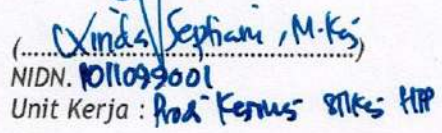 (Winda Septiani, M.Kes)
NIDN. 1011099001
Unit Kerja : Prodi Kesmas STIKes HTP